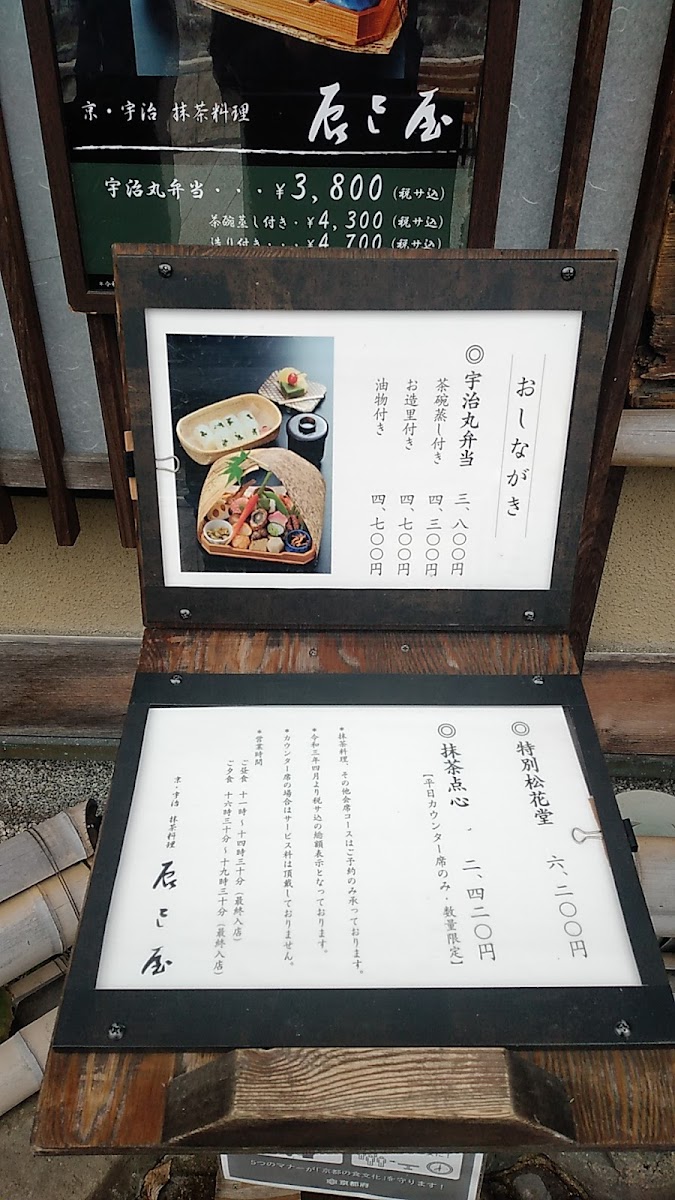 京・宇治 抹茶料理 辰巳屋
宇治丸弁当・・・¥3,800(税サ込)
茶碗蒸し付き・¥4,300(税サ込)
造り付き・・¥4,700(税サ込)
おしながき
◎宇治丸弁当 三、八〇〇円
茶碗蒸し付き 四、三〇〇円
お造里付き 四、七〇〇円
油物付き 四、七〇〇円
◎特別松花堂 六、二〇〇円
◎抹茶点心 二、四二〇円
【平日カウンター席のみ・数量限定】
*抹茶料理、その他会席コースはご予約のみ承っております。
*令和三年四月より税サ込の総額表示となっております。
*カウンター席の場合はサービス料は頂戴しておりません。
*営業時間
ご昼食 十一時～十四時三十分(最終入店)
ご夕食 十六時三十分～十九時三十分(最終入店)
京・宇治 抹茶料理 辰巳屋
5つのマナーが「京都の食文化」を守ります!
京都府